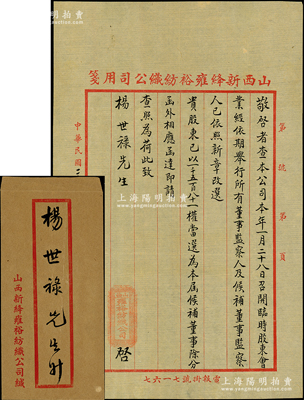 山西新绛雍裕紡織公司用箋
第 號 第 頁
敬啓者查本公司本年一月二十八日召開臨時股東會
業經依期舉行所有董事監察人及候補董事監察
人已依照新章改選
貴股東已以一千五百八十一權當選為本届候補董事除分
函外相應函達即請
查照為荷此致
楊世禄先生
啓
中華民國三
電報掛號七一六七
楊世禄先生
山西新绛雍裕紡織公司緘
上海阳明拍卖公司
www.ymauction.com